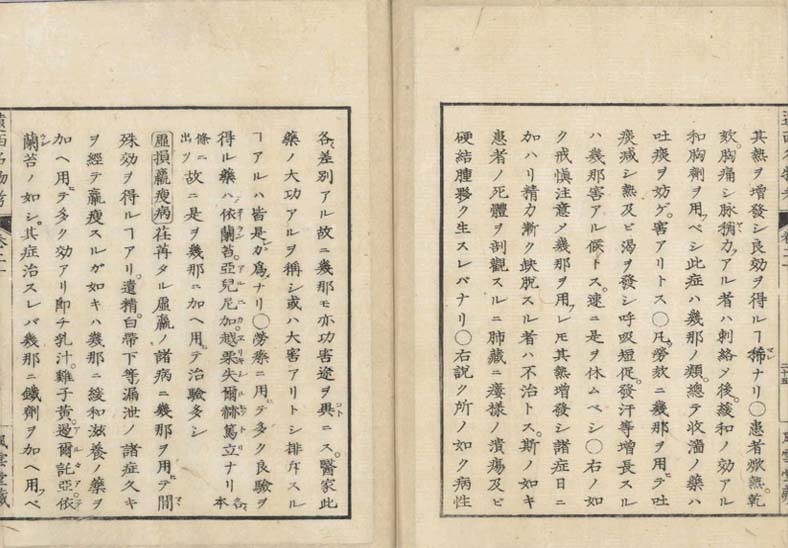 其熱ヲ増發シ良効ヲ得ルヿ稀ナリ〇患者焮熱乾
欬。胸痛シ脉猶力アル者ハ刺絡ノ後。緩和ノ効アル
和胸劑ヲ用ベシ此症ハ幾那ノ類。總テ收濇ノ藥ハ
吐痰ヲ妨ゲ。害アリトス〇凡。勞欬ニ幾那ヲ用テ吐
痰減シ熱及ビ渴ヲ發シ呼吸短促。發汗等增長スル
ハ幾那害アル候トス。速ニ是ヲ休ムベシ〇右ノ如
ク戒愼注意メ幾那ヲ用レモ其熱增發シ諸症日ニ
加ハリ精力漸ク缺脫スル者ハ不治トス。斯ノ如キ
患者ノ死體ヲ剖觀スルニ肺藏ニ瘻様ノ潰瘍及ビ
硬結腫夥ク生スレバナリ〇右說ク所ノ如ク病性
各差別アル故ニ幾那モ亦功害途ヲ異ニス。醫家此
藥ノ大功アルヲ稱シ或ハ大害アリトシ排斥スル
ヿアルハ皆是ガ爲ナリ〇勞瘵ニ用テ多ク良驗ヲ
得ル藥ハ依蘭苔。亞兒尼加。越栗失爾 篤立ナリ 各本
條ニ出ツ 故ニ是ヲ幾那ニ加ヘ用テ治驗多シ
虛損羸瘦病 荏苒タル虛羸ノ諸病ニ幾那ヲ用テ間
殊効ヲ得ルヿアリ。遺精。白帶下等漏泄ノ諸症久キ
ヲ經テ羸瘦スルガ如キハ幾那ニ緩和滋養ノ藥ヲ
加ヘ用テ多ク効アリ卽チ乳汁。雞子黃。 爾託亞。依
蘭苔ノ如シ。其症治スレバ幾那ニ鐵劑ヲ加ヘ用ベ
遠西名物考 卷二
風雲堂藏